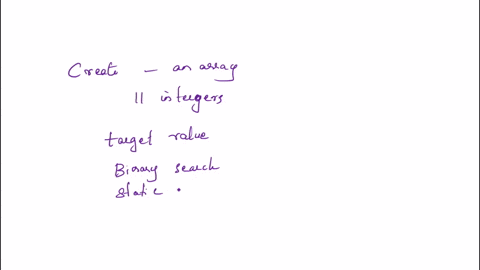 Create - an array
11 integers
target value
Binary search
static .